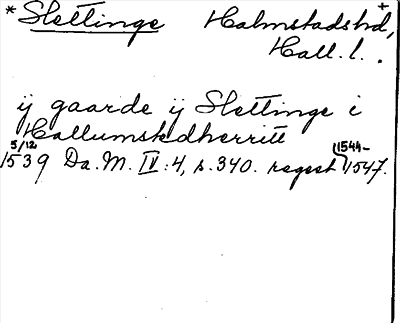 * Slettinge Halmstads hd, +
Hall. l.
ij gaarde ij Slettinge i
Hallumstedherritt
5/12 1539 Da. M. IV:4, s. 340. regest 1544-1547.